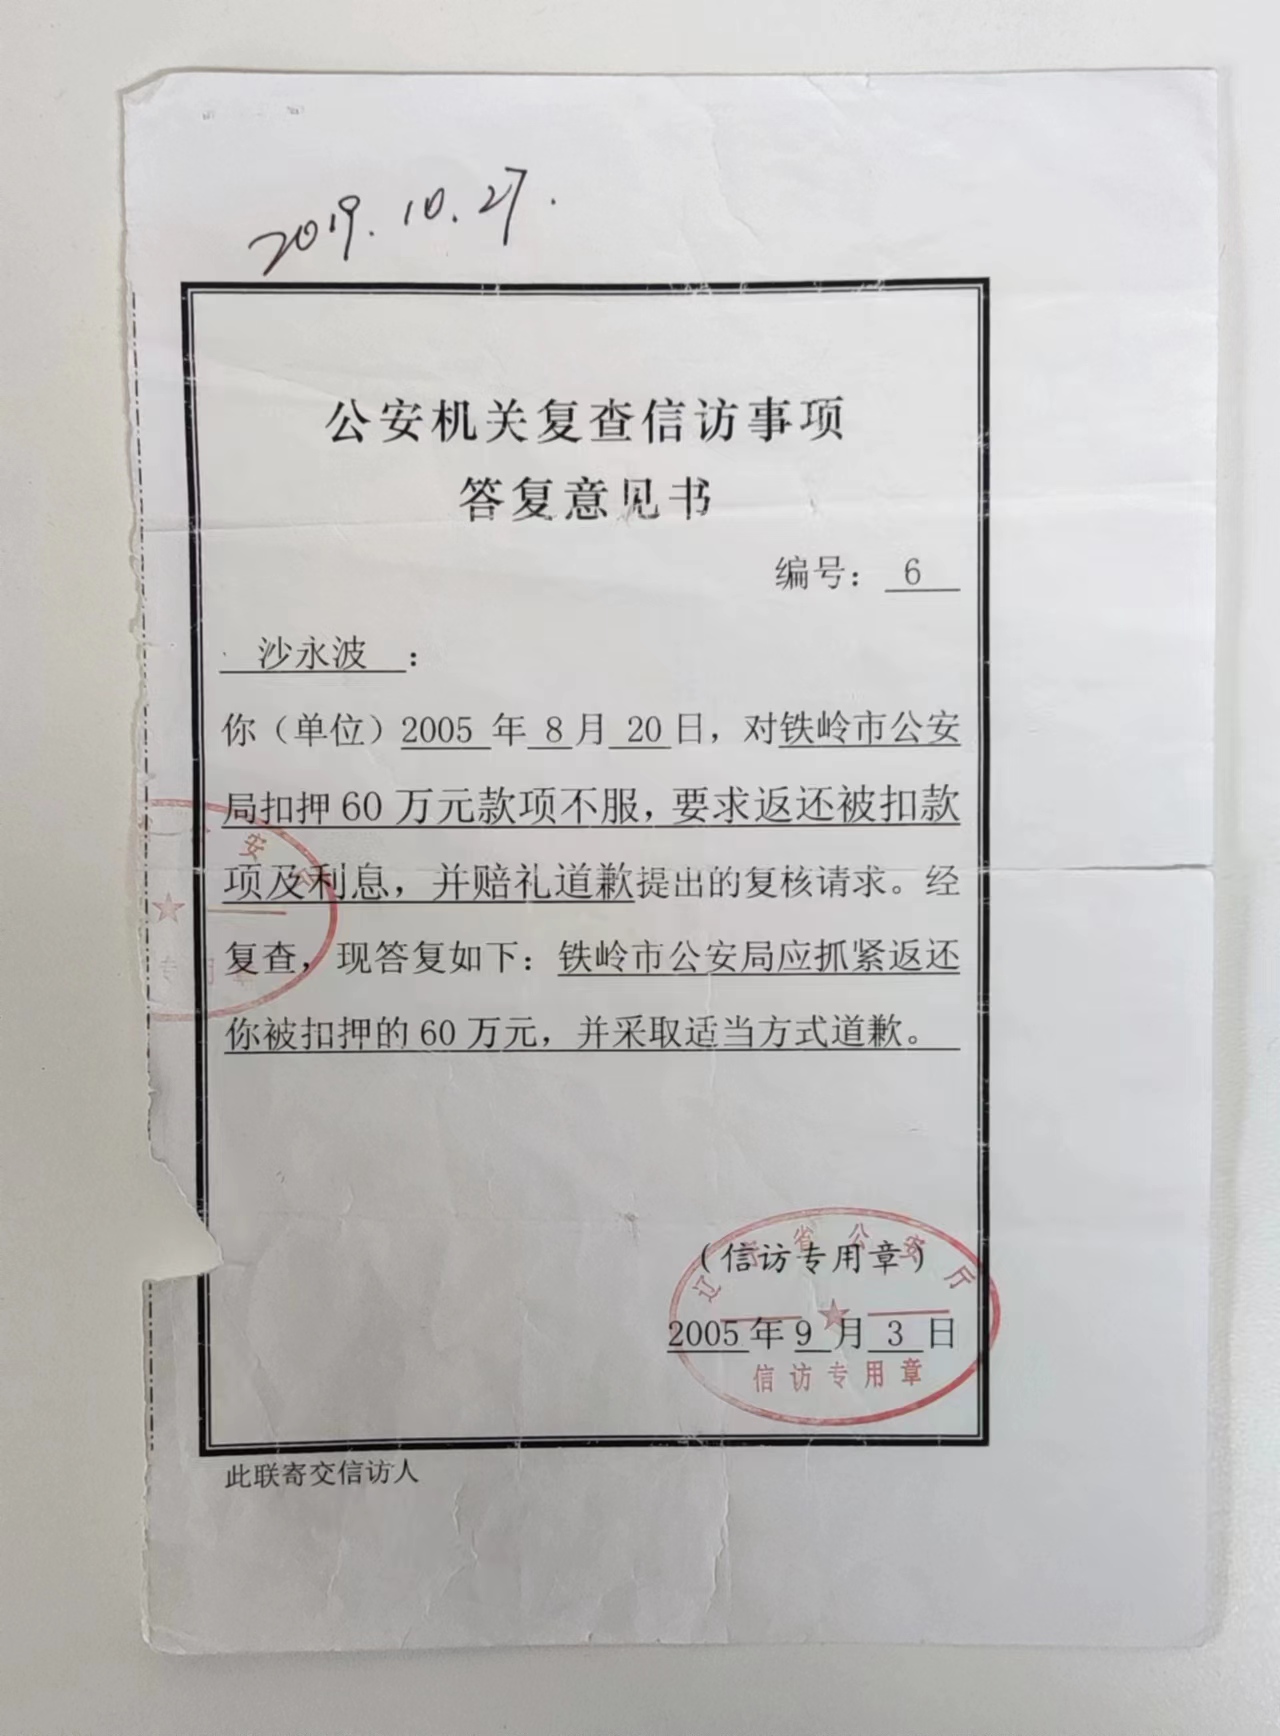 2019.10.27.
公安机关复查信访事项
答复意见书
编号： 6
沙永波 ：
你（单位）2005 年 8 月 20 日，对铁岭市公安
局扣押 60 万元款项不服，要求返还被扣款
项及利息，并赔礼道歉提出的复核请求。经
复查，现答复如下：铁岭市公安局应抓紧返还
你被扣押的 60 万元，并采取适当方式道歉。
安
专用
辽宁省公安厅
（信访专用章）
2005 年 9 月 3 日
信访专用章
此联寄交信访人